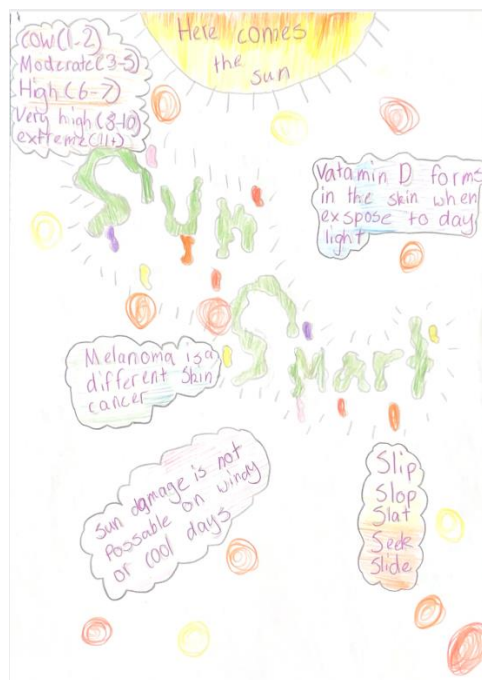 Here comes
the
sun
cow(1-2)
Moderate(3-5)
High(6-7)
Very high(8-10)
extreme(11+)
Sun
Vatamin D forms
in the skin when
exspose to day
light
Smart
Melanoma is a
different skin
cancer
sun damage is not
possable on windy
or cool days
Slip
Slop
Slat
Seek
Slide